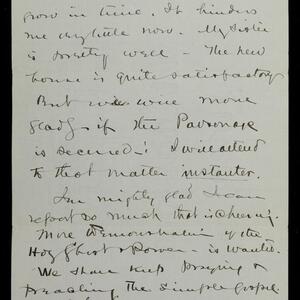 grow in time. It hinders
me very little now. My Sister
is pretty well – The new
house is quite satisfactory
But we will move
gladly if the Parsonage
is secured! I will attend
to that matter instanter.
I am mighty glad I can
report so much that is cheering.
More demonstration of the
Holy Ghost & Power – is wanted.
We shall keep praying &
preaching the Simple Gospel